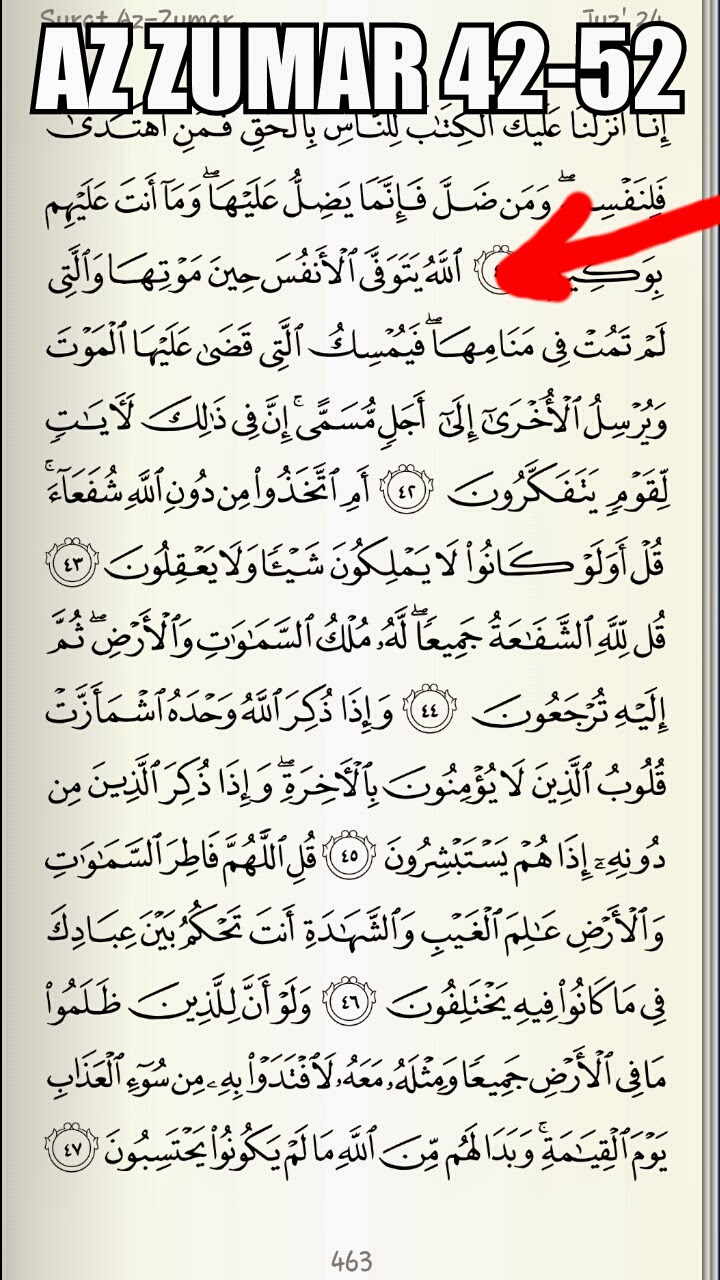 Surat Az-Zumar Juz' 24
AZ ZUMAR 42-52
إِنَّا أَنزَلْنَا عَلَيْكَ الْكِتَٰبَ لِلنَّاسِ بِالْحَقِّ فَمَنِ اهْتَدَىٰ
فَلِنَفْسِهِۦ ۖ وَمَن ضَلَّ فَإِنَّمَا يَضِلُّ عَلَيْهَا ۖ وَمَآ أَنتَ عَلَيْهِم
ٱللَّهُ يَتَوَفَّى ٱلْأَنفُسَ حِينَ مَوْتِهَا وَٱلَّتِى
لَمْ تَمُتْ فِى مَنَامِهَا ۖ فَيُمْسِكُ ٱلَّتِى قَضَىٰ عَلَيْهَا ٱلْمَوْتَ
وَيُرْسِلُ ٱلْأُخْرَىٰٓ إِلَىٰٓ أَجَلٍ مُّسَمًّى ۚ إِنَّ فِى ذَٰلِكَ لَءَايَٰتٍ
لِّقَوْمٍ يَتَفَكَّرُونَ ٤٢ أَمِ ٱتَّخَذُوا۟ مِن دُونِ ٱللَّهِ شُفَعَآءَ ۚ
قُلْ أَوَلَوْ كَانُوا۟ لَا يَمْلِكُونَ شَيْـًٔا وَلَا يَعْقِلُونَ ٤٣
قُل لِّلَّهِ ٱلشَّفَٰعَةُ جَمِيعًا ۖ لَّهُۥ مُلْكُ ٱلسَّمَٰوَٰتِ وَٱلْأَرْضِ ۖ ثُمَّ
إِلَيْهِ تُرْجَعُونَ ٤٤ وَإِذَا ذُكِرَ ٱللَّهُ وَحْدَهُ ٱشْمَأَزَّتْ
قُلُوبُ ٱلَّذِينَ لَا يُؤْمِنُونَ بِٱلْءَاخِرَةِ ۖ وَإِذَا ذُكِرَ ٱلَّذِينَ مِن
دُونِهِۦٓ إِذَا هُمْ يَسْتَبْشِرُونَ ٤٥ قُلِ ٱللَّهُمَّ فَاطِرَ ٱلسَّمَٰوَٰتِ
وَٱلْأَرْضِ عَٰلِمَ ٱلْغَيْبِ وَٱلشَّهَٰدَةِ أَنتَ تَحْكُمُ بَيْنَ عِبَادِكَ
فِى مَا كَانُوا۟ فِيهِ يَخْتَلِفُونَ ٤٦ وَلَوْ أَنَّ لِلَّذِينَ ظَلَمُوا۟
مَا فِى ٱلْأَرْضِ جَمِيعًا وَمِثْلَهُۥ مَعَهُۥ لَٱفْتَدَوْا۟ بِهِۦ مِن سُوٓءِ ٱلْعَذَابِ
يَوْمَ ٱلْقِيَٰمَةِ ۚ وَبَدَا لَهُم مِّنَ ٱللَّهِ مَا لَمْ يَكُونُوا۟ يَحْتَسِبُونَ ٤٧
463